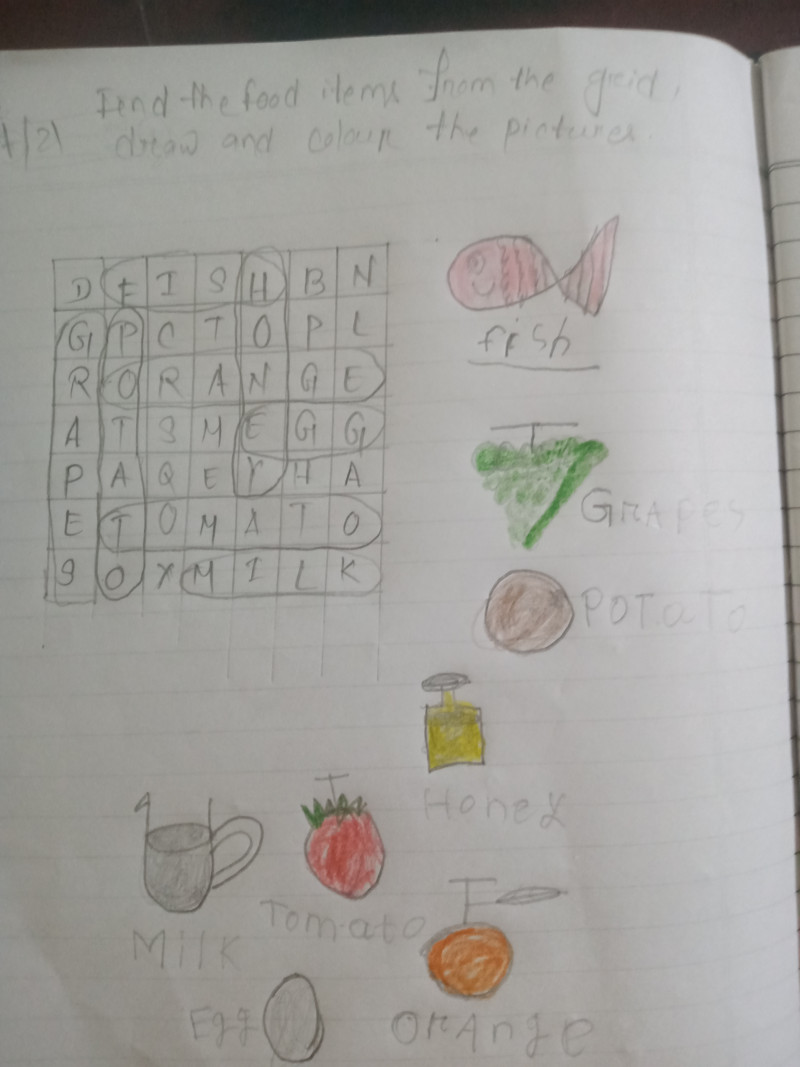 Find the food items from the greid,
draw and colour the pictures.
D F I S H B N
G P C T O P L
R O R A N G E
A T S M E G G
P A Q E Y H A
E T O M A T O
S O X M I L K
fish
GRAPES
POTaTo
Honey
Tomato
Milk
Egg
ORAnge